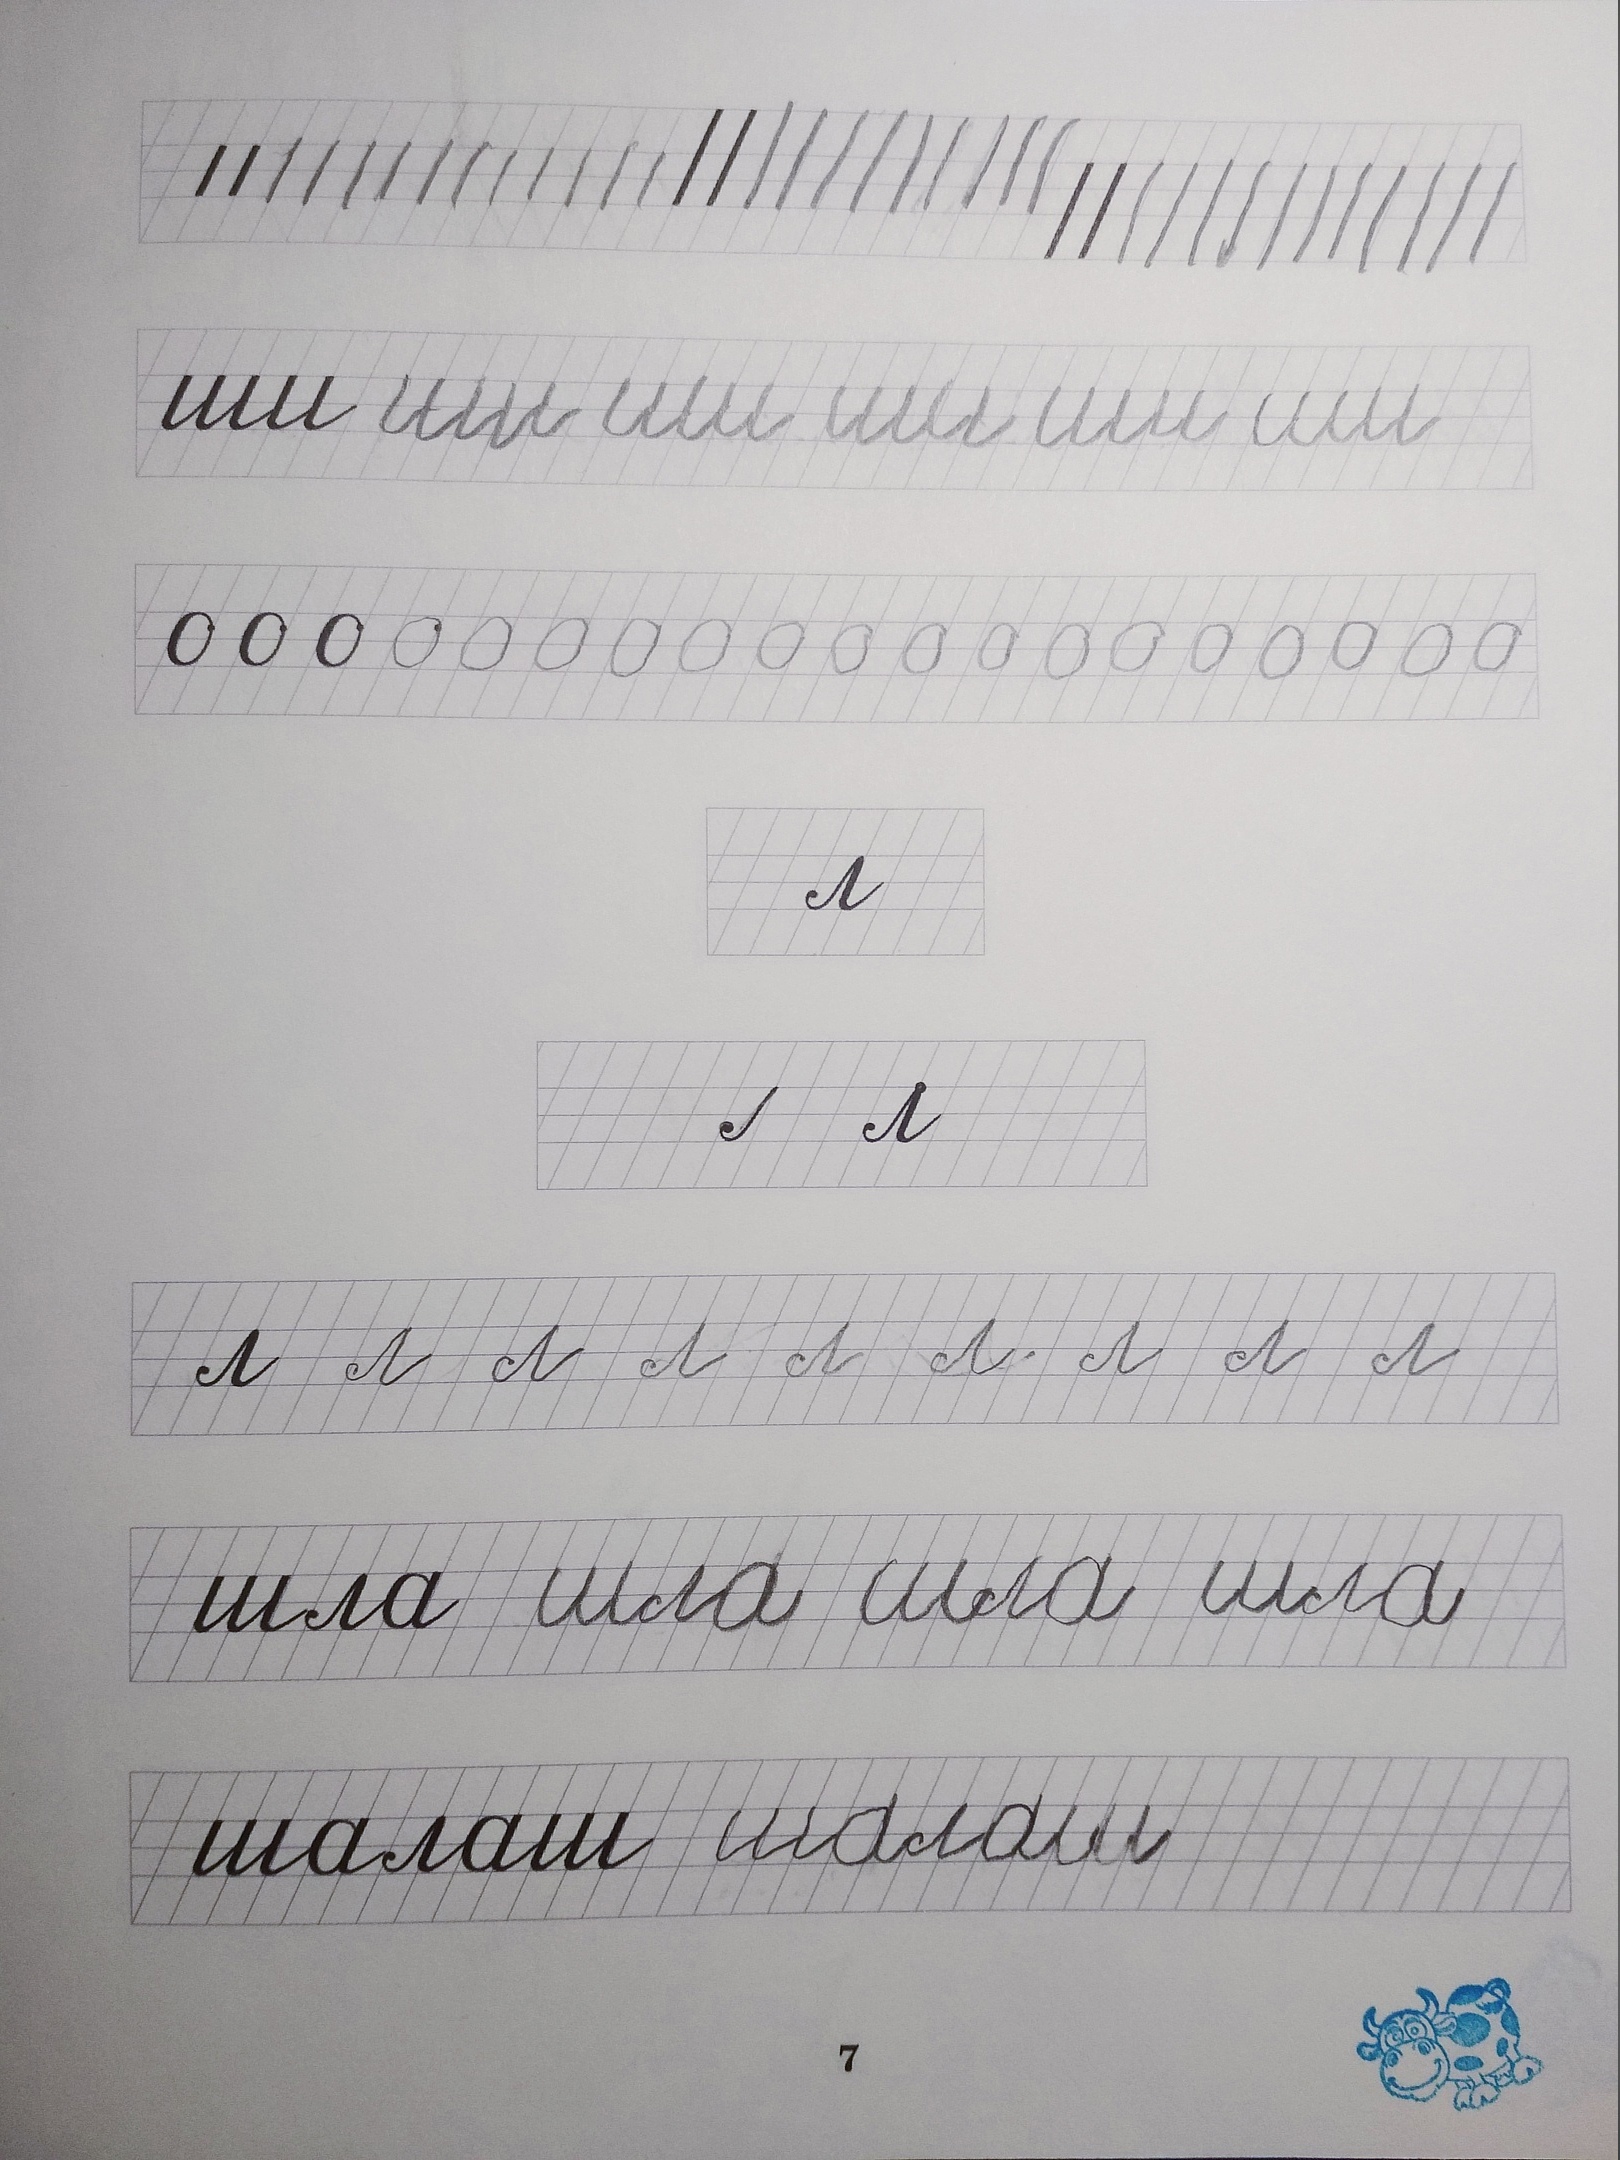 ши ши ши ши ши ши
о о о о о о о о о о о о о о о о о о о
л
л
л л л л л л л л л
шла шла шла шла
шалаш шалаш
7